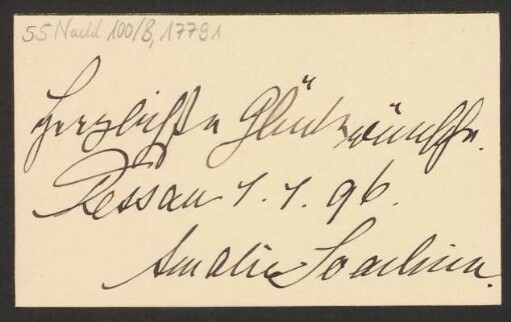 55 Nachl 100/B, 17791
Herzlichste Glückwünsche.
Dessau 1.1.96.
Amalie Joachim.